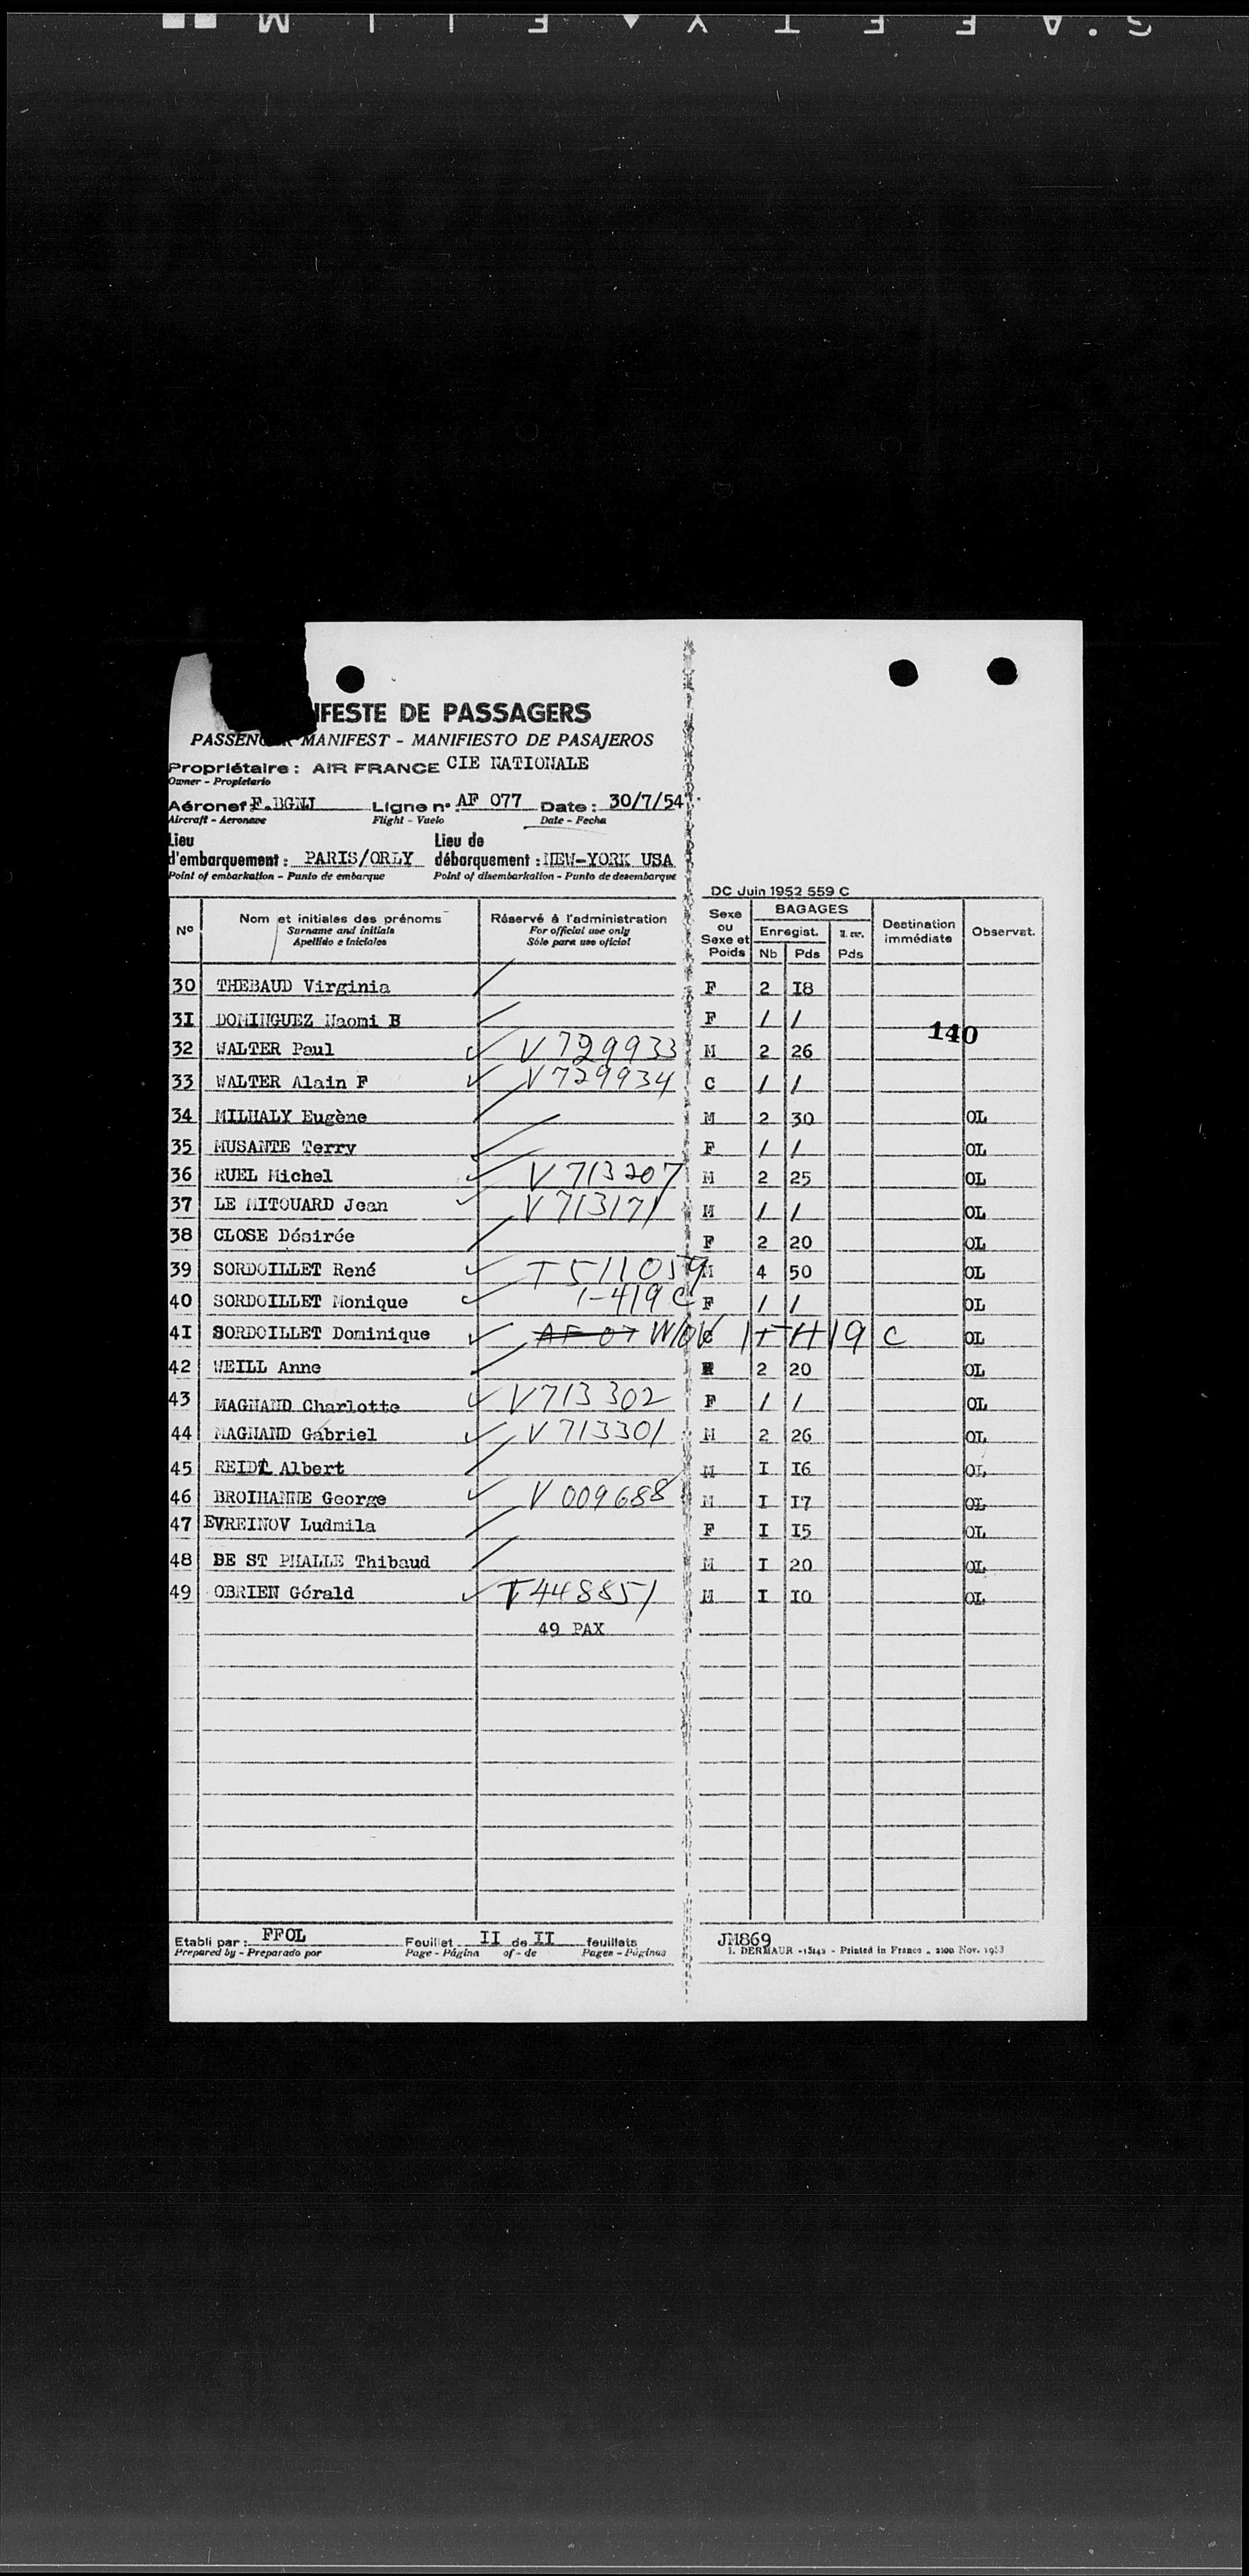 SAFETY FILM
IFESTE DE PASSAGERS
PASSENGER MANIFEST - MANIFIESTO DE PASAJEROS
Propriétaire : AIR FRANCE CIE NATIONALE
Owner - Propietario
Aéronef F.BGNJ Ligne n° AF 077 Date : 30/7/54
Aircraft - Aeronave Flight - Vuelo Date - Fecha
Lieu d'embarquement : PARIS/ORLY Lieu de débarquement : NEW-YORK USA
Point of embarkation - Punto de embarque Point of disembarkation - Punto de desembarque
DC Juin 1952 559 C
N° Nom et initiales des prénoms Réservé à l'administration Sexe ou Sexe et Poids BAGAGES Destination immédiate Observat.
Surname and initials For official use only Enregist.
Apellido e iniciales Sólo para uso oficial Nb Pds Pds
30 THEBAUD Virginia F 2 I8
3I DOMINGUEZ Naomi B F / /
140
32 WALTER Paul V 729933 M 2 26
33 WALTER Alain F V 729934 C / /
34 MILHALY Eugène M 2 30 OL
35 MUSANTE Terry F / / OL
36 RUEL Michel V 713207 M 2 25 OL
37 LE MITOUARD Jean V 713171 M / / OL
38 CLOSE Désirée F 2 20 OL
39 SORDOILLET René T 511059 M 4 50 OL
40 SORDOILLET Monique 1-419 C F / / OL
4I SORDOILLET Dominique AF 07 OL
42 WEILL Anne 2 20 OL
43 MAGNAND Charlotte V713302 F / / OL
44 MAGNAND Gabriel V 713301 M 2 26 OL
45 REIDT Albert M I I6 OL
46 BROIHANNE George V 009688 M I I7 OL
47 EVREINOV Ludmila F I I5 OL
48 DE ST PHALLE Thibaud M I 20 OL
49 OBRIEN Gérald T448851 M I I0 OL
49 PAX
Etabli par : FFOL Feuillet II de II feuillets JM869
Prepared by - Preparado por Page - Página of - de Pages - Páginas I. DERMAUR - 15142 - Printed in France - 2100 Nov. 1953